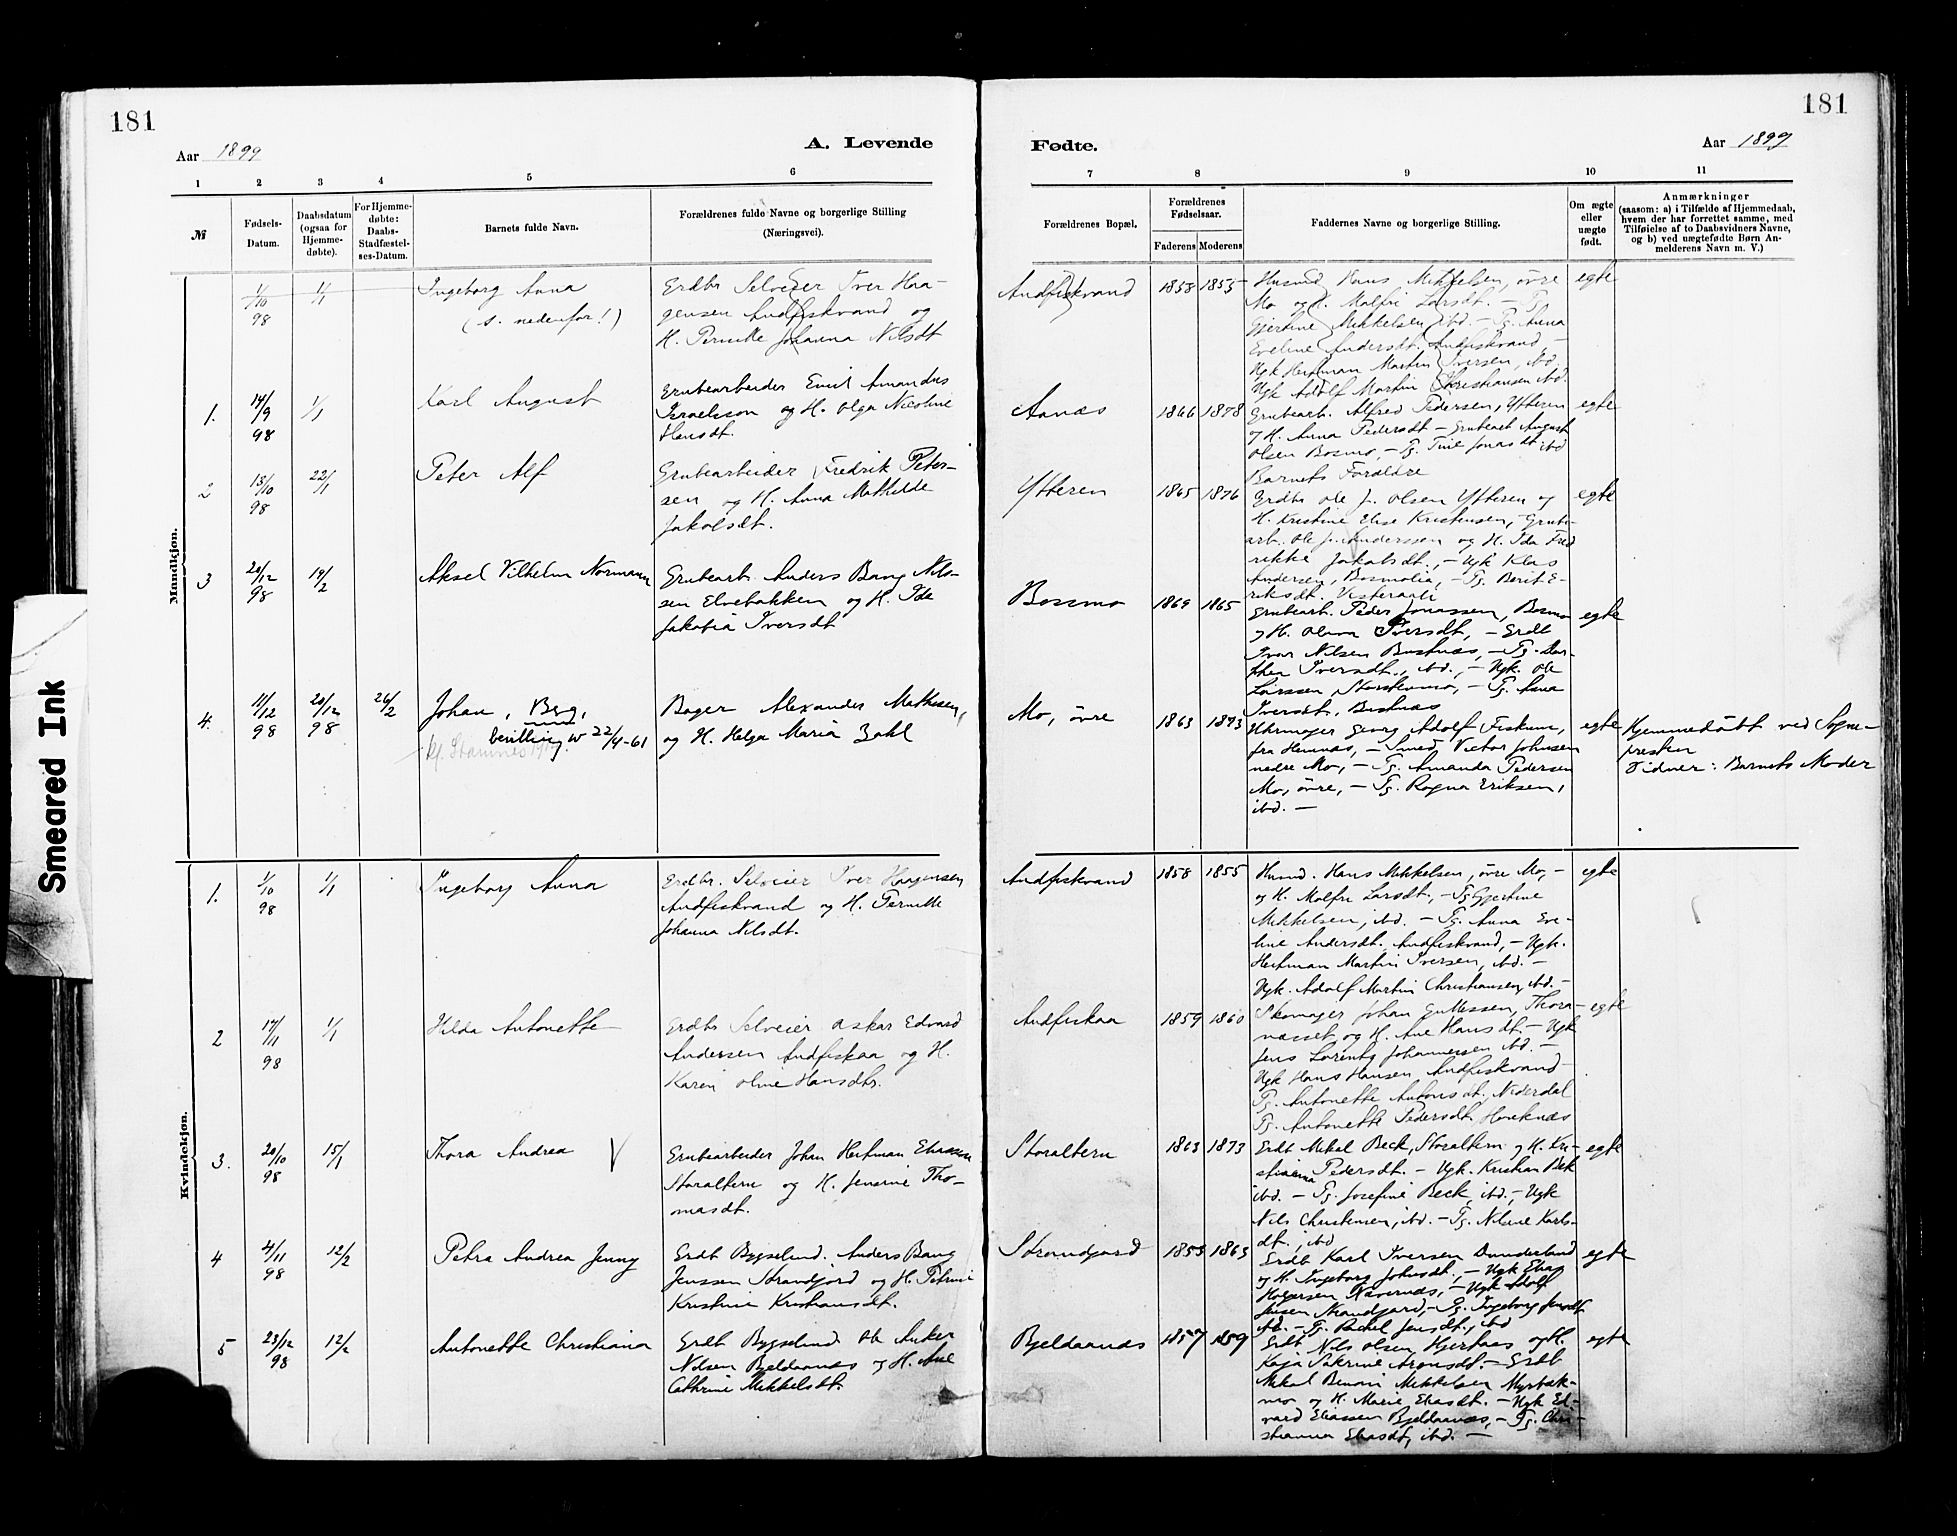 181
181
Aar 1899
A. Levende
Fødte.
Aar 1899
1 2 3 4 5 6 7 8 9 10 11
№
Fødsels-
Datum.
Daabsdatum
(ogsaa for
Hjemme-
døbte).
For Hjemme-
døbte:
Daabs-
Stadfæstel-
ses-Datum.
Barnets fulde Navn.
Forældrenes fulde Navne og borgerlige Stilling
(Næringsvei).
Forældrenes Bopæl.
Forældrenes
Fødselsaar.
Faderens Moderens
Faddernes Navne og borgerlige Stilling.
Om ægte
eller
uægte
født.
Anmærkninger
(saasom: a) i Tilfælde af Hjemmedaab,
hvem der har forrettet samme, med
Tilføielse af to Daabsvidners Navne,
og b) ved uægtefødte Børn An-
melderens Navn m. V.)
Mandkjøn.
1/10 98
1/1
Ingeborg Anna
(s. nedenfor!)
Erdbr Selveier Iver Haa-
gensen Andfiskvand og
H. Pernille Johanna Nilsdt
Andfiskvand
1858 1855
Husmd Hans Mikkelsen, övre
Mo og H. Malfri Larsdt. — Pg.
Gjertine Mikkelsen, ibd. — Pg. Anna
Eveline Andersdt. Andfiskvand, —
Ugk Herman Martin Iversen, ibd.
Ugk Adolf Martin Christiansen ibd.
egte
1.
14/9 98
1/1
Karl August
Grubearbeider Emil Amandus
Israelsson og H. Olga Nicoline
Hansdt.
Aanæs
1866 1878
Grubearb. Alfred Pedersen, Ytteren
og H. Anna Pedersdt — Grubearb August
Olsen Bosmo, — Pg. Tine Jonasdt ibd
Barnets Forældre
egte
2
13/10 98
22/1
Peter Alf
Grubearbeider Fredrik Peter-
sen og H. Anna Mathilde
Jakobsdt.
Ytteren
1865 1876
Erdbr Ole J. Olsen Ytteren og
H. Kristine Elise Kristensen, — Grube-
arb. Ole J. Anderssen og H. Ida Fred
rikke Jakobsdt., — Ugk Klas
Andersen, Bosmolia, — Pg. Berit E-
riksdt. Vesteraali
egte
3
20/12 98
19/2
Aksel Vilhelm Normann
Grubearb. Anders Bang Nils-
sen Elvebakken og H. Ida
Jakobia Iversdt
Bosmo
1869 1865
Grubearb. Peder Jonassen, Bosmo
og H. Olava Iversdt, — Erdb
Ivar Nilsen Bustnæs, — Pg. Dor-
thea Iversdt., ibd., — Ugk. Ole
Larssen, — Pg. Anna
Iversdt, Bustnæs
egte
4.
11/12 98
20/12 98
26/2
Johan, Berg,
bevilling av 22/4-61
Bager Alexander Mathisen,
og H. Helga Maria Zahl
Mo, övre
1863 1873
Uhrmager Georg Adolf Fiskum,
fra Hemnæs, — Smed Victor Johnsen
nedre Mo, — Pg. Amanda Pedersen
Mo, övre, — Pg. Ragna Eriksen,
ibd. —
egte
Hjemmedöbt ved Sogne-
presten
Vidner: Barnets Moder
Kvindekjøn.
1.
1/10 98
1/1
Ingeborg Anna
Erdbr. Selveier Iver Haagensen
Andfiskvand og H. Pernille
Johanna Nilsdt.
Andfiskvand
1858 1855
Husmd. Hans Mikkelsen, övre Mo, —
og H. Malfri Larsdt., — Pg Gjertine
Mikkelsen, ibd. — Pg. Anna Eve-
line Andersdt. Andfiskvand, — Ugk.
Herman Martin Iversen, ibd. —
Ugk. Adolf Martin Christiansen, ibd. —
egte
2
17/11 98
1/1
Hilda Antonette
Erdbr Selveier Oskar Edvard
Andersen Andfiskaa og H.
Karen Oline Hansdtr.
Andfiskaa
1859 1860
Skomager Johan Gullessen, Thora-
næsset og H. Ane Hansdt. — Ugk
Jens Lorentz Johannessen ibd. —
Ugk Hans Hansen Andfiskvand
Pg. Antonette Antonsdt. Nederdal
Pg. Antonette Pedersdt. Høneknæs
egte
3.
20/10 98
15/1
Thora Andrea V
Grubearbeider Johan Herman Eliassen
Storalteren og H. Jensine Tho-
masdt.
Storalteren
1863 1873
Erdb Mikal Beck, Storalteren og H. Kri-
stianna Pedersdt. — Ugk. Kristian Beck
ibd. — Pg. Josefine Beck, ibd., — Ugk
Nils Christensen, ibd. — Pg. Nilsine Karls-
dt., ibd
egte
4
4/11 98
12/2
Petra Andrea Jenny
Erdb Bygselmd. Anders Bang
Jenssen Strandjord og H. Petrine
Kristine Kristiansdt.
Strandjord
1853 1863
Erdb Karl Iversen Dunderland
og H. Ingeborg Johnsdt., — Ugk Elias
Holgersen Nævernæs, — Ugk Adolf
Jensen Strandjord, — Pg. Ingeborg Jensdt
ibd. — Pg. Rachel Jensdt., ibd
egte
5
23/12 98
12/2
Antonette Christiana
Erdb Bygselmd Ole Anker
Nilsen Bjeldaanæs og H. Ane
Cathrine Mikkelsdt.
Bjeldaanæs
1857 1859
Erdb Nils Olsen Hjerhaas og H.
Kaja Petrine Aronsdt. — Erdb
Mikal Benoni Mikkelsen Myrbæk-
mo og H. Marie Eliasdt. — Ugk Ed-
vard Eliassen Bjeldaanæs, — Pg. Chri-
stianna Eliasdt, ibd. —
egte
Smeared Ink